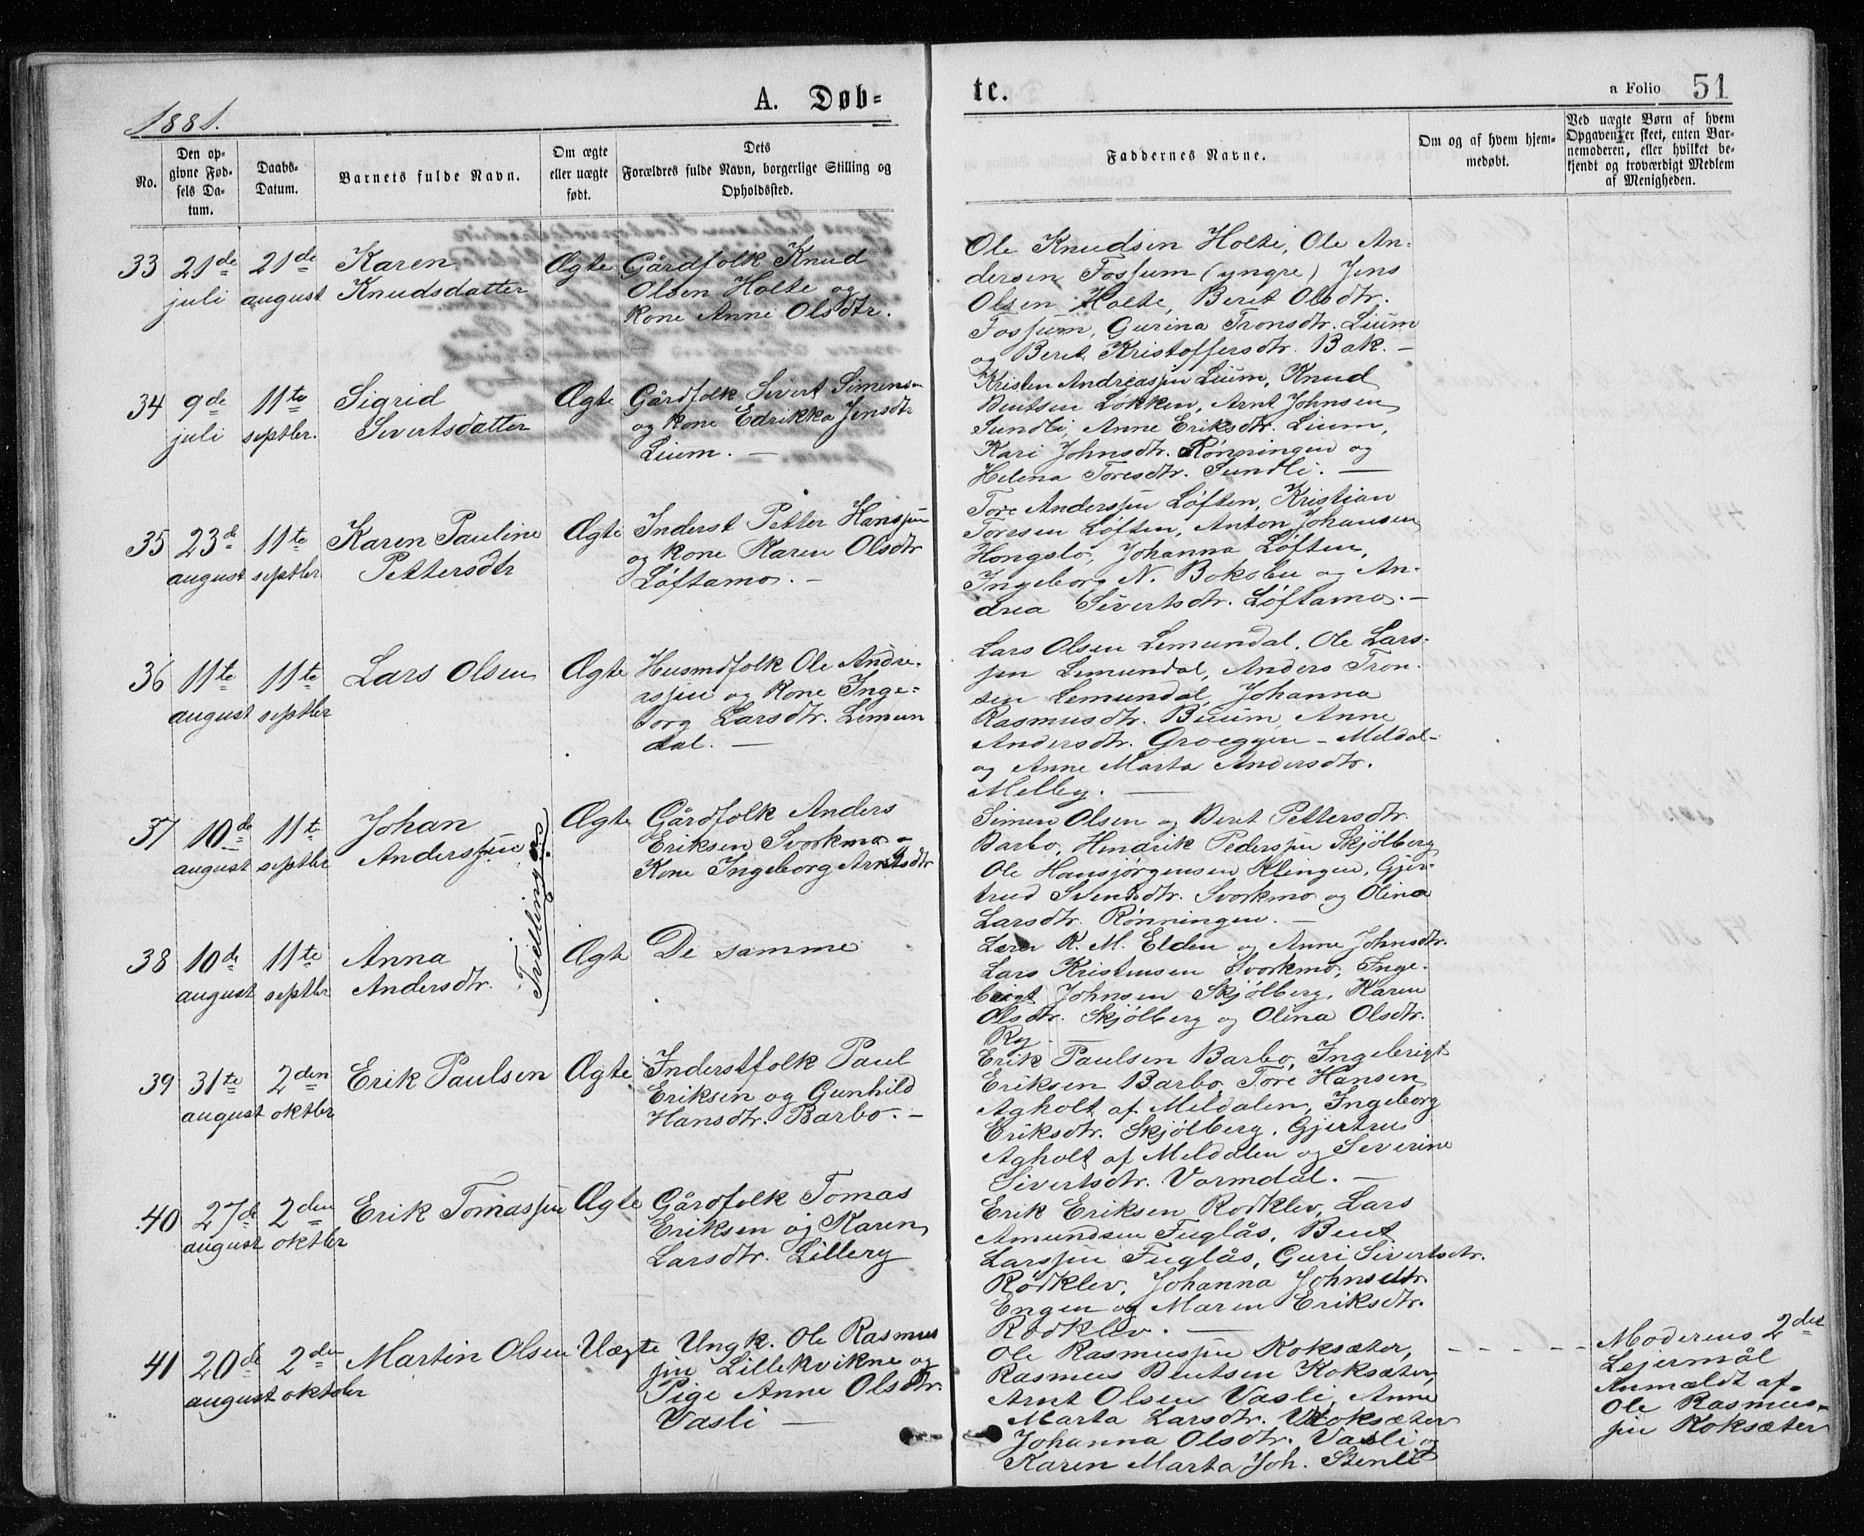 1881.
A. Døb-
te.
a Folio 51
No.
Den op-
givne Fød-
sels Da-
tum.
Daabs-
Datum.
Barnets fulde Navn.
Om ægte
eller uægte
født.
Dets
Forældres fulde Navn, borgerlige Stilling og
Opholdssted.
Faddernes Navne.
Om og af hvem hjem-
medøbt.
Ved uægte Børn af hvem
Opgaven er skeet, enten Bar-
nemoderen, eller hvilket be-
kjendt og troværdigt Medlem
af Menigheden.
33
21de
juli
21de
august
Karen
Knudsdatter
Ægte
Gårdfolk Knud
Olsen Holte og
kone Anne Olsdtr.
Ole Knudsen Holte, Ole An-
dersen Fossum (yngre) Jens
Olsen Holte, Beret Olsdtr.
Fossum, Gurina Tronsdtr. Lium
og Beret Kristoffersdtr. Bak. –
34
9de
juli
11te
septbr.
Sigrid
Sivertsdatter
Ægte
Gårdfolk Sivert Simensen
og kone Edrikka Jensdtr
Lium. –
Kristen Andreassen Lium, Knud
Bentsen Løkken, Arnt Johnsen
Sundli, Anne Eriksdtr. Lium,
Kari Johnsdtr. Rønningen og
Helena Toresdtr. Sundli. –
35
23d
august
11te
septbr.
Karen Pauline
Pettersdtr
Ægte
Inderst Petter Hanssen
og kone Karen Olsdtr
Løftamo. –
Tore Anderssen Løften, Kristian
Toresen Løften, Anton Johansen
Hongslo, Johanna Løften,
Ingeborg N. Boksbu og An-
drea Sivertsdtr. Løftamo. –
36
11te
august
11te
septbr
Lars Olsen
Ægte
Husmdfolk Ole Andre-
assen og Kone Inge-
borg Larsdtr. Lemun
dal. –
Lars Olsen Lemundal, Ole Lars-
sen Lemundal, Anders Tron-
sen Lemundal, Johanna
Rasmusdtr. Buum, Anne
Andersdtr. Groeggen – Meldal –
og Anne Marta Andersdtr.
Melby. –
37
10de
august
11te
septbr
Johan
Anderssen
Tvillinger
Ægte
Gårdfolk Anders
Eriksen Svorkmo –
Kone Ingeborg Arntsdtr
Simen Olsen og Beret Pettersdtr
Barbo, Hendrik Pederssen Skjølberg
Ole Hansjørgensen Klingen, Gjer-
trud Svendsdtr. Svorkmo og Olina
Larsdtr. Rønningen. –
38
10de
august
11te
septbr
Anna
Andersdtr.
Ægte
De samme
Lærer K. M. Elden og Anne Johnsdtr.
Lars Kristensen Svorkmo, Inge-
brigt Johnsen Skjølberg, Karen
Olsdtr. Skjølberg og Olina Olsdtr.
Ry –
39
31te
august
2den
oktbr
Erik Paulsen
Ægte
Inderstfolk Paul
Eriksen og Gunhild
Hansdtr. Barbo. –
Erik Paulsen Barbo, Ingebrigt
Eriksen Barbo, Tore Hansen
Agholt af Meldalen, Ingeborg
Eriksdtr. Skjølberg, Gjertrud
Agholt af Meldalen og Severine
Sivertsdtr. Vormdal. –
40
27de
august
2den
oktbr
Erik Tomassen
Ægte
Gårdfolk Tomas
Eriksen og Karen
Larsdtr. Lillery
Erik Eriksen Rødklev, Lars
Amundsen Fuglås, Bent
Larssen Fuglås, Guri Sivertsdtr.
Rødklev, Johanna Johnsdtr.
Engen og Maren Eriksdtr.
Rødklev. –
41
20de
august
2den
oktober
Martin Olsen
Uægte
Ungk. Ole Rasmus
sen Lillekvikne og
Pige Anne Olsdtr.
Vasli –
Ole Rasmussen Koksæter,
Rasmus Bentsen Koksæter,
Arnt Olsen Vasli, Anne
Marta Larsdtr. Koksæter
Johanna Olsdtr. Vasli og
Karen Marta Joh. Stenli
Moderens 2det
Lejermål
Anmeldt af
Ole Rasmus-
sen Koksæter